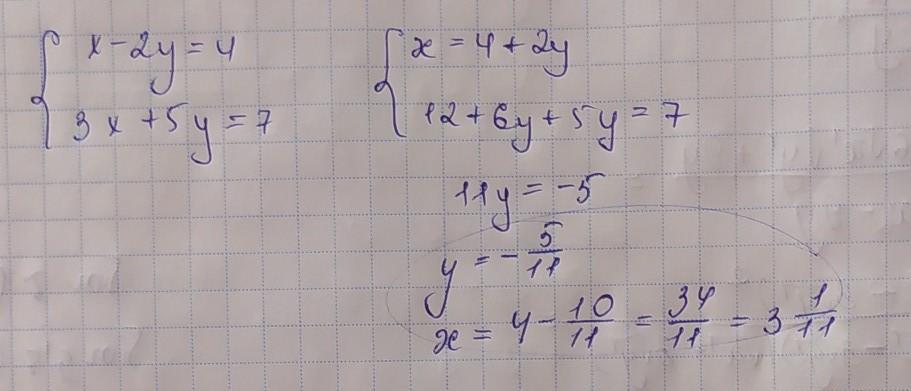 x - 2y = 4
3x + 5y = 7
x = 4 + 2y
12 + 6y + 5y = 7
11y = -5
y = - 5/11
x = 4 - 10/11 = 34/11 = 3 1/11